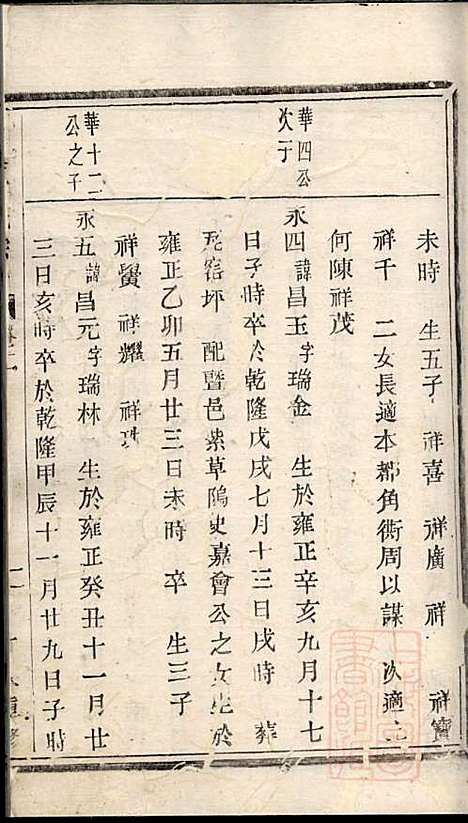 未時　生五子　祥喜　祥廣　祥　祥寶
祥千　二女長適本都角街周以謀　次適上
何陳祥茂
華四公次子
永四諱昌玉字瑞金　生於雍正辛亥九月十七
日子時卒於乾隆戊戌七月十三日戌時　葬
窑坪　配暨邑紫草隖史嘉會公之女生於
雍正乙卯五月廿三日未時　卒　生三子
祥鬓　祥耀　祥珠
華十二公之子
永五諱昌元字瑞林　生於雍正癸丑十一月廿
三日亥時卒於乾隆甲辰十一月廿九日子時